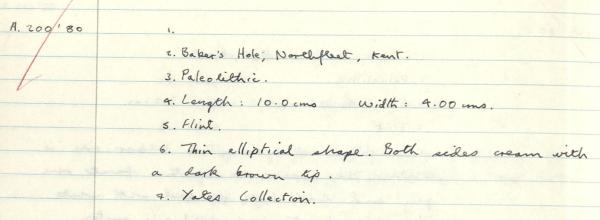 A. 200'80
1.
2. Baker's Hole, Northfleet, Kent.
3. Paleolithic.
4. Length : 10.0 cms Width : 4.00 cms.
5. Flint.
6. Thin elliptical shape. Both sides cream with
a dark brown tip.
7. Yates Collection.